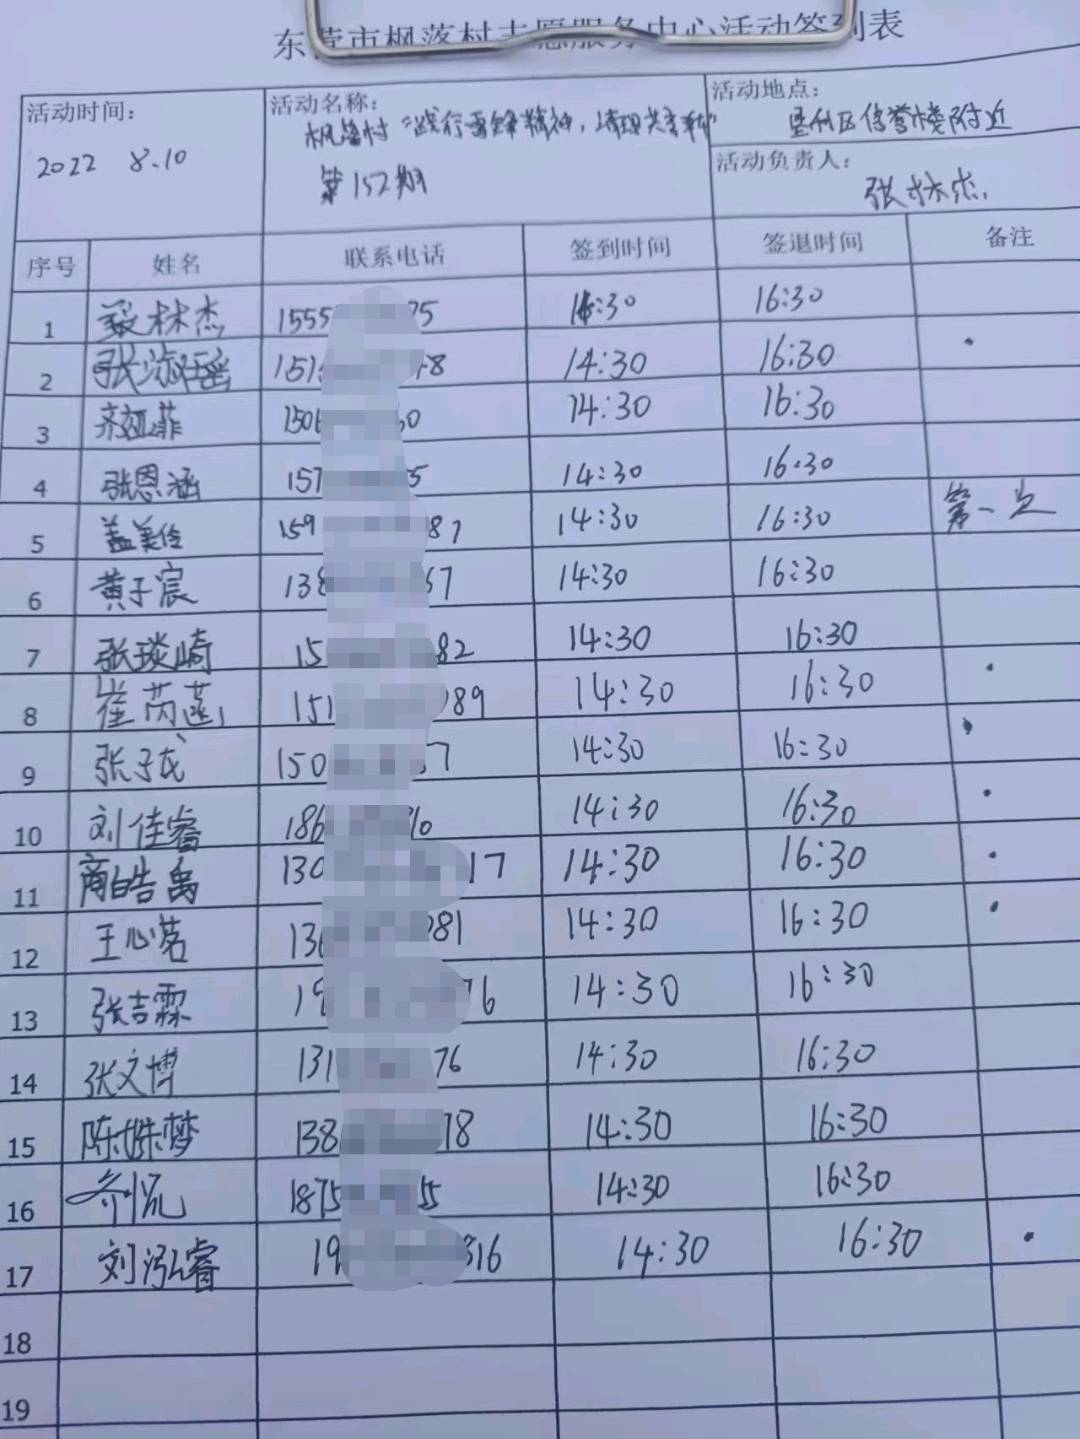 东营市枫落村志愿服务中心活动签到表
活动时间：
2022 8.10
活动名称：
枫落村“践行雷锋精神，清理共享单车”
第152期
活动地点：
垦利区信誉楼附近
活动负责人：
张林杰.
序号 姓名 联系电话 签到时间 签退时间 备注
1 林杰 1555 75 14:30 16:30
2 张淑瑶 151 8 14:30 16:30
3 亚菲 150 0 14:30 16:30
4 张恩涵 157 5 14:30 16:30
5 盖美伶 159 87 14:30 16:30 第一次
6 黄子宸 138 67 14:30 16:30
7 张琰崎 15 82 14:30 16:30
8 崔芮菡 151 089 14:30 16:30
9 张子 150 7 14:30 16:30
10 刘佳睿 186 10 14:30 16:30
11 商皓禹 130 17 14:30 16:30
12 王心茗 136 081 14:30 16:30
13 张吉霖 19 76 14:30 16:30
14 张文博 131 76 14:30 16:30
15 陈姝梦 138 78 14:30 16:30
16 1875 5 14:30 16:30
17 刘泓睿 19 316 14:30 16:30
18
19